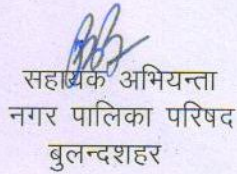 सहायक अभियन्ता
नगर पालिका परिषद
बुलन्दशहर